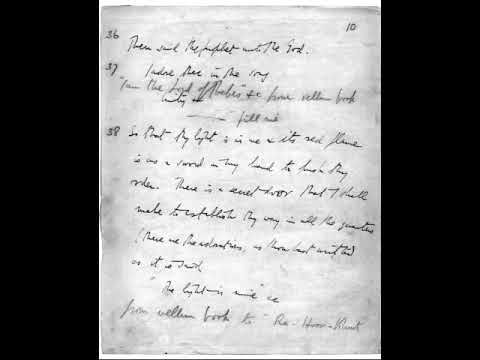 10
36
Then said the prophet unto the God.
37
I adore thee in the song
"I am the Lord of Thebes" &c from vellum book
——— fill me
38 So that thy light is in me & its red flame
is as a sword in my hand to push thy
order. There is a secret door that I shall
make to establish thy way in all the quarters
(these are the adorations, as thou hast written)
as it is said
"The light is mine" &c
from vellum book to "Ra-Hoor-Khuit